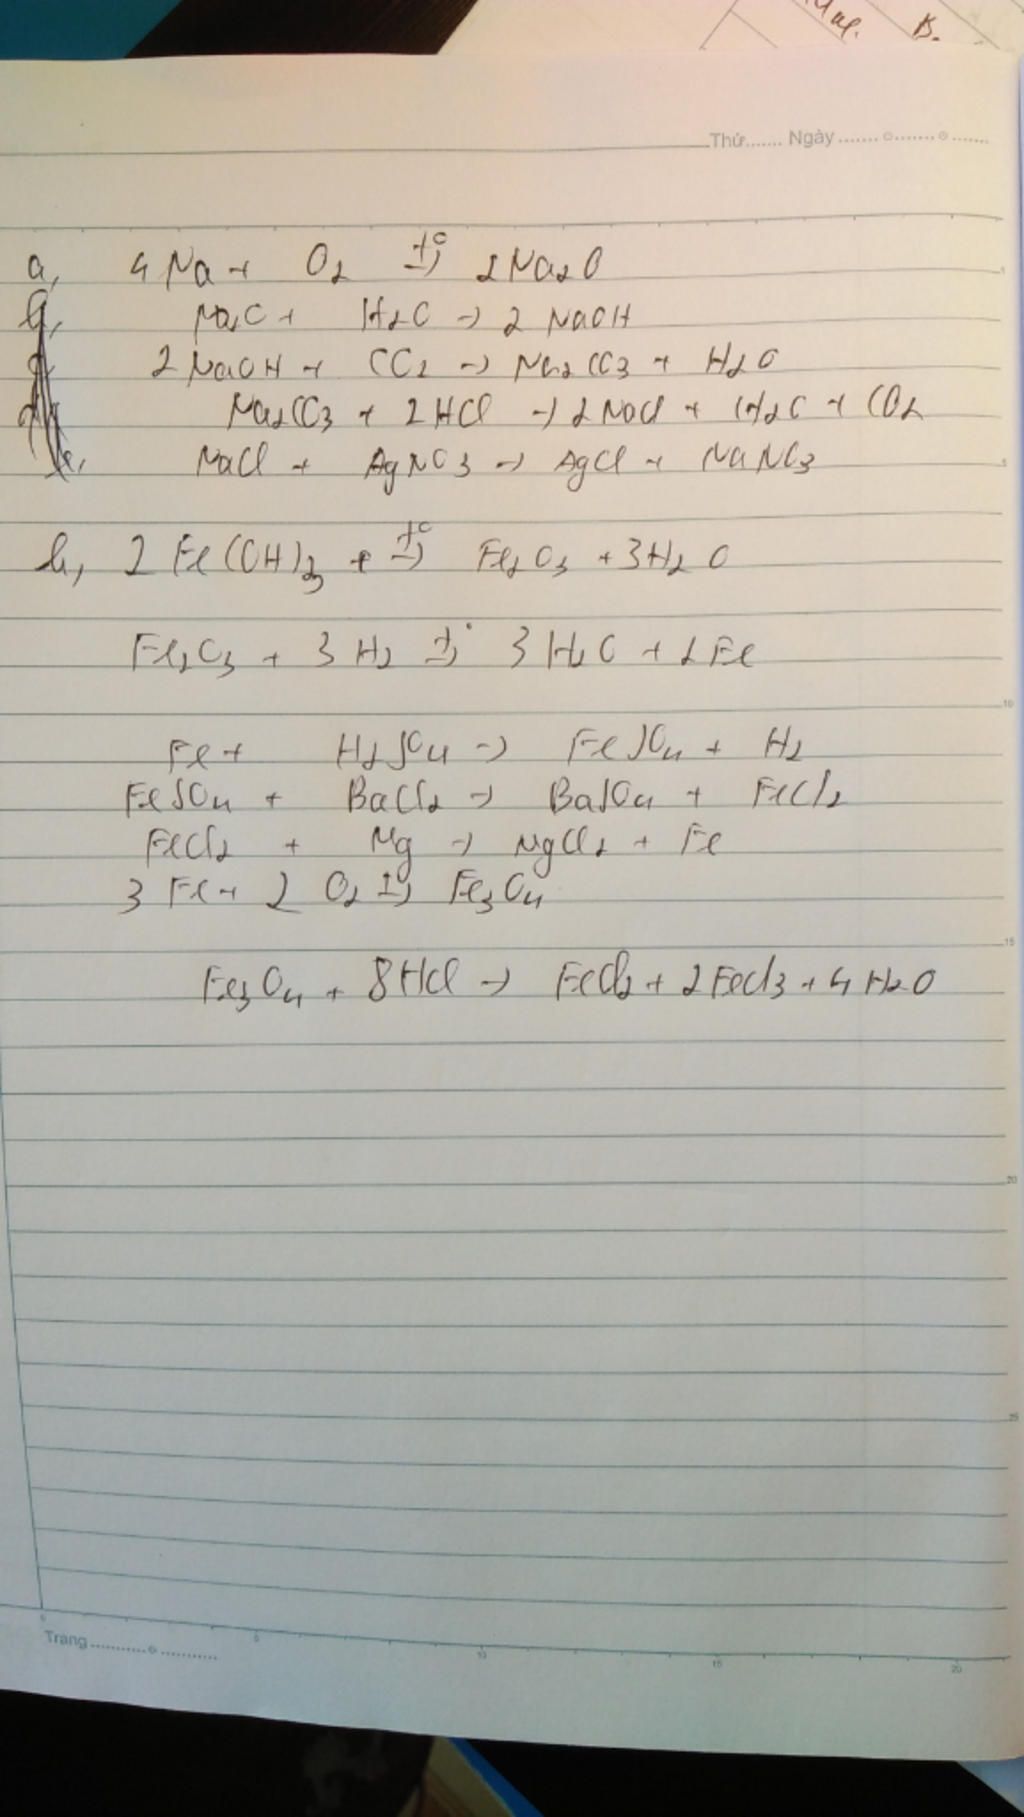 B.
Thứ....... Ngày ...............
a, 4Na + O2 t°→ 2Na2O
Na2O + H2O → 2 NaOH
2 NaOH + CO2 → Na2CO3 + H2O
Na2CO3 + 2HCl → 2NaCl + H2O + CO2
NaCl + AgNO3 → AgCl + NaNO3
b, 2 Fe(OH)3 + t°→ Fe2O3 + 3H2O
Fe2O3 + 3H2 t°→ 3H2O + 2Fe
Fe + H2SO4 → FeSO4 + H2
FeSO4 + BaCl2 → BaSO4 + FeCl2
FeCl2 + Mg → MgCl2 + Fe
3 Fe + 2 O2 t→ Fe3O4
Fe3O4 + 8HCl → FeCl2 + 2FeCl3 + 4H2O
Trang........................